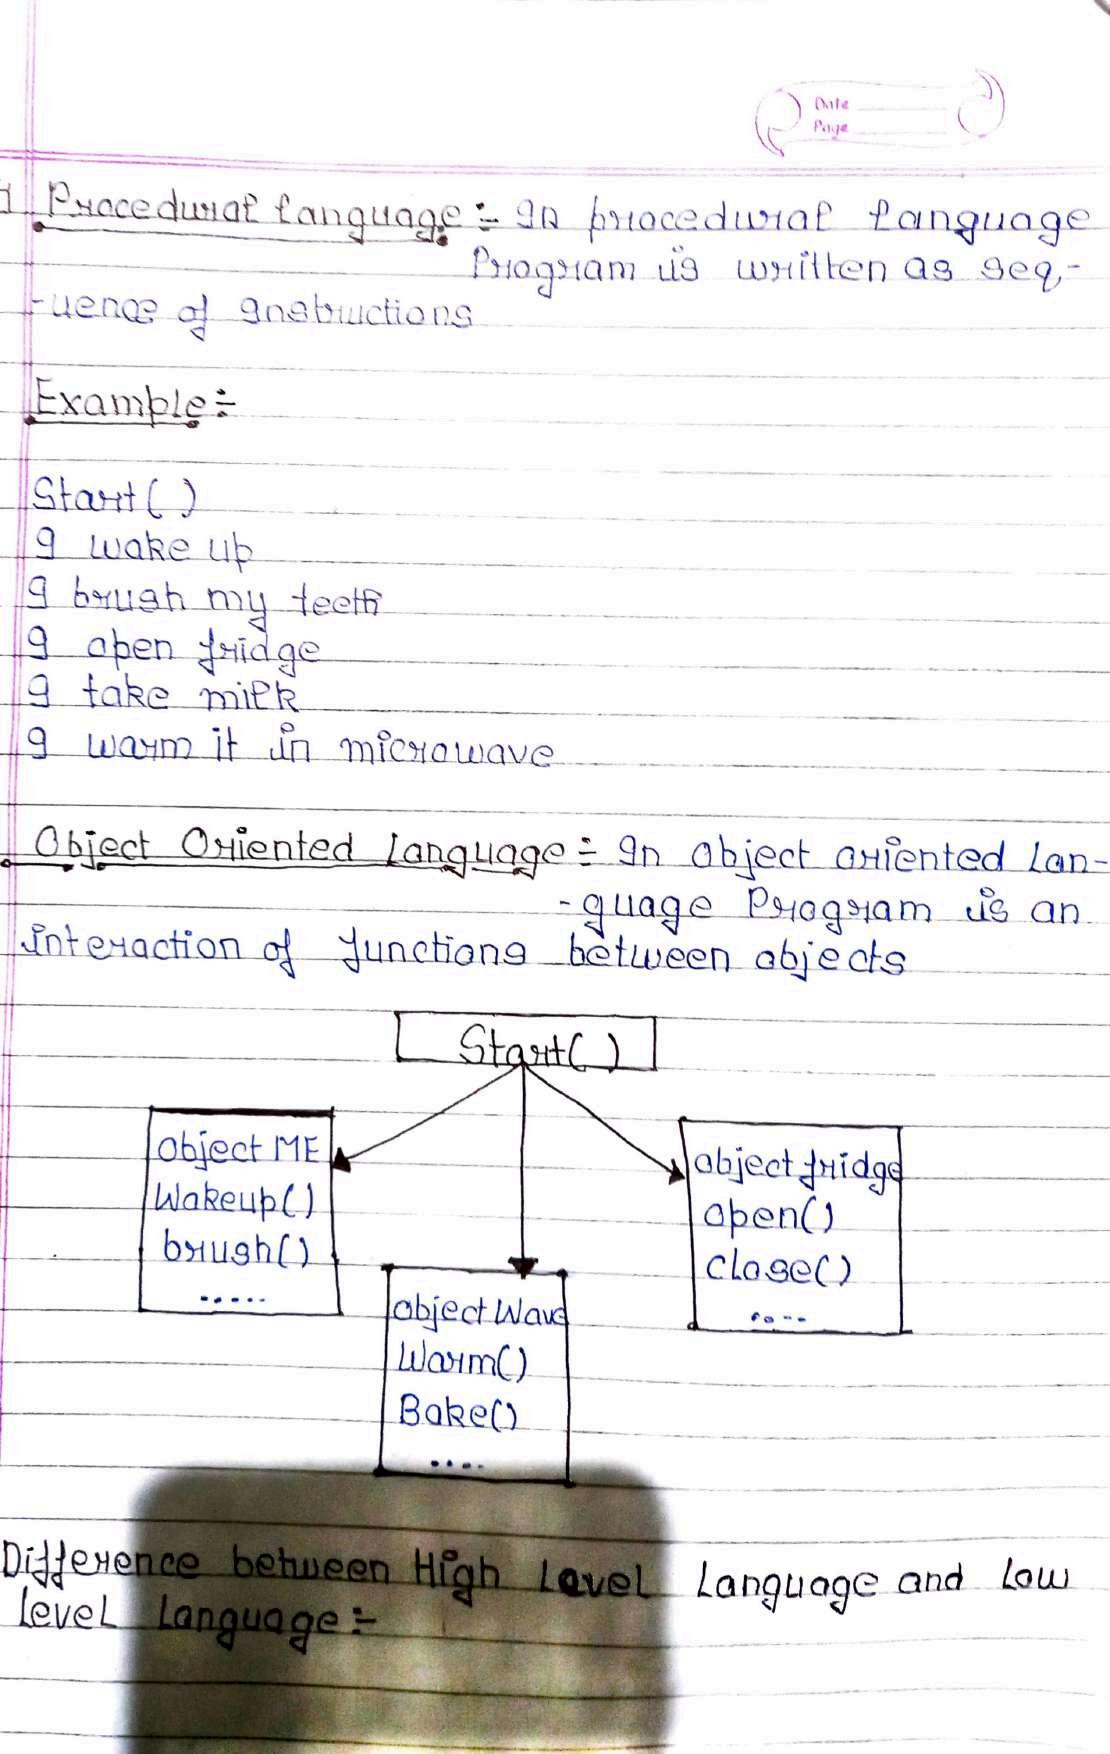 Date
Page
Procedural language :- In procedural language
Program is written as seq-
-uence of Instructions
Example :-
Start( )
I wake up
I brush my teeth
I open fridge
I take milk
I warm it in microwave
Object Oriented Language :- In object oriented Lan-
-guage Program is an
interaction of functions between objects
Start( )
object ME
Wakeup( )
brush( )
.....
object fridge
open( )
close( )
....
object Wave
Warm( )
Bake( )
....
Difference between High Level Language and Low
level Language :-